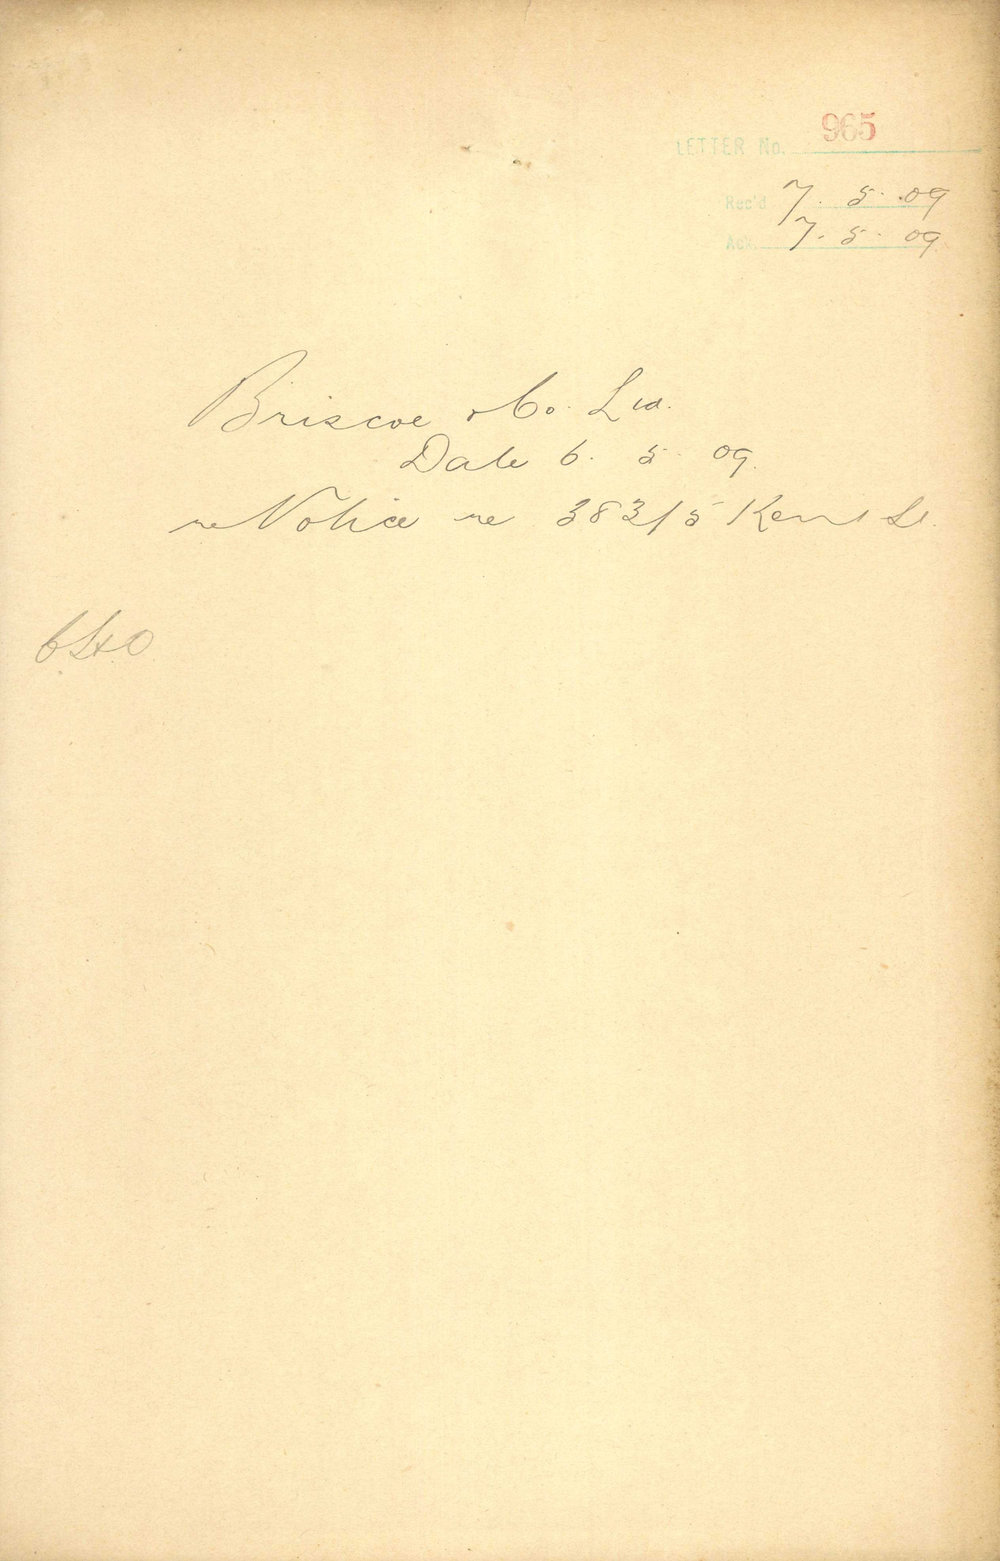 LETTER No. 965
Rec'd 7. 5. 09
Ack. 7. 5. 09
Briscoe & Co. Ltd.
Date 6. 5. 09.
re Notice re 383/5 Kent St.